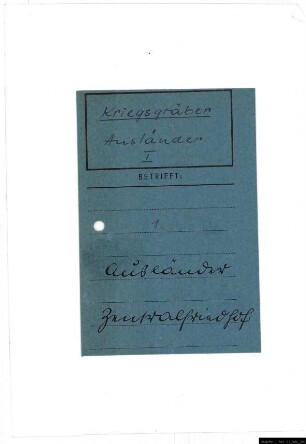 Kriegsgräber
Ausländer
I
BETRIFFT:
1.
Ausländer
Zentralfriedhof